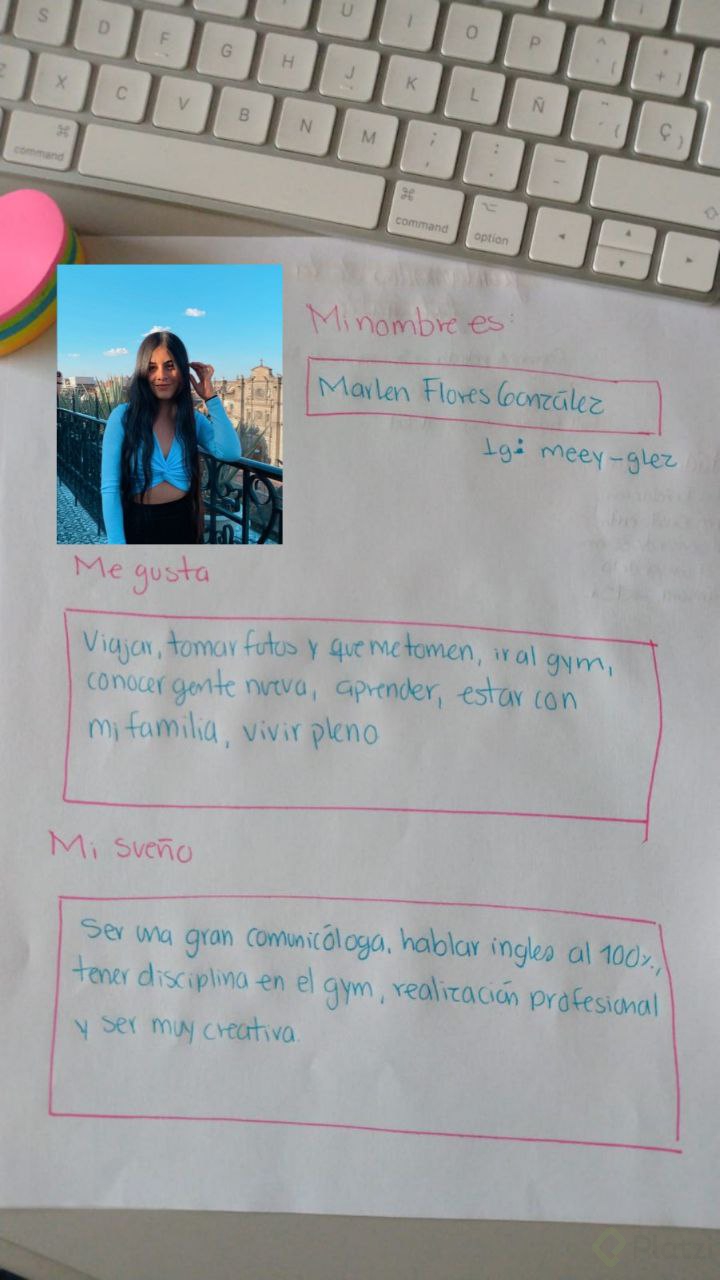 S D F G H J K L Ñ
U I O P
Z X C V B N M ; : _
, . -
⌘ command
⌘ command
⌥ option
Mi nombre es:
Marlen Flores González
Ig: meey-glez
Me gusta
Viajar, tomar fotos y que me tomen, ir al gym,
conocer gente nueva, aprender, estar con
mi familia, vivir pleno
Mi sueño
Ser una gran comunicóloga, hablar ingles al 100%,
tener disciplina en el gym, realización profesional
y ser muy creativa.
Platzi